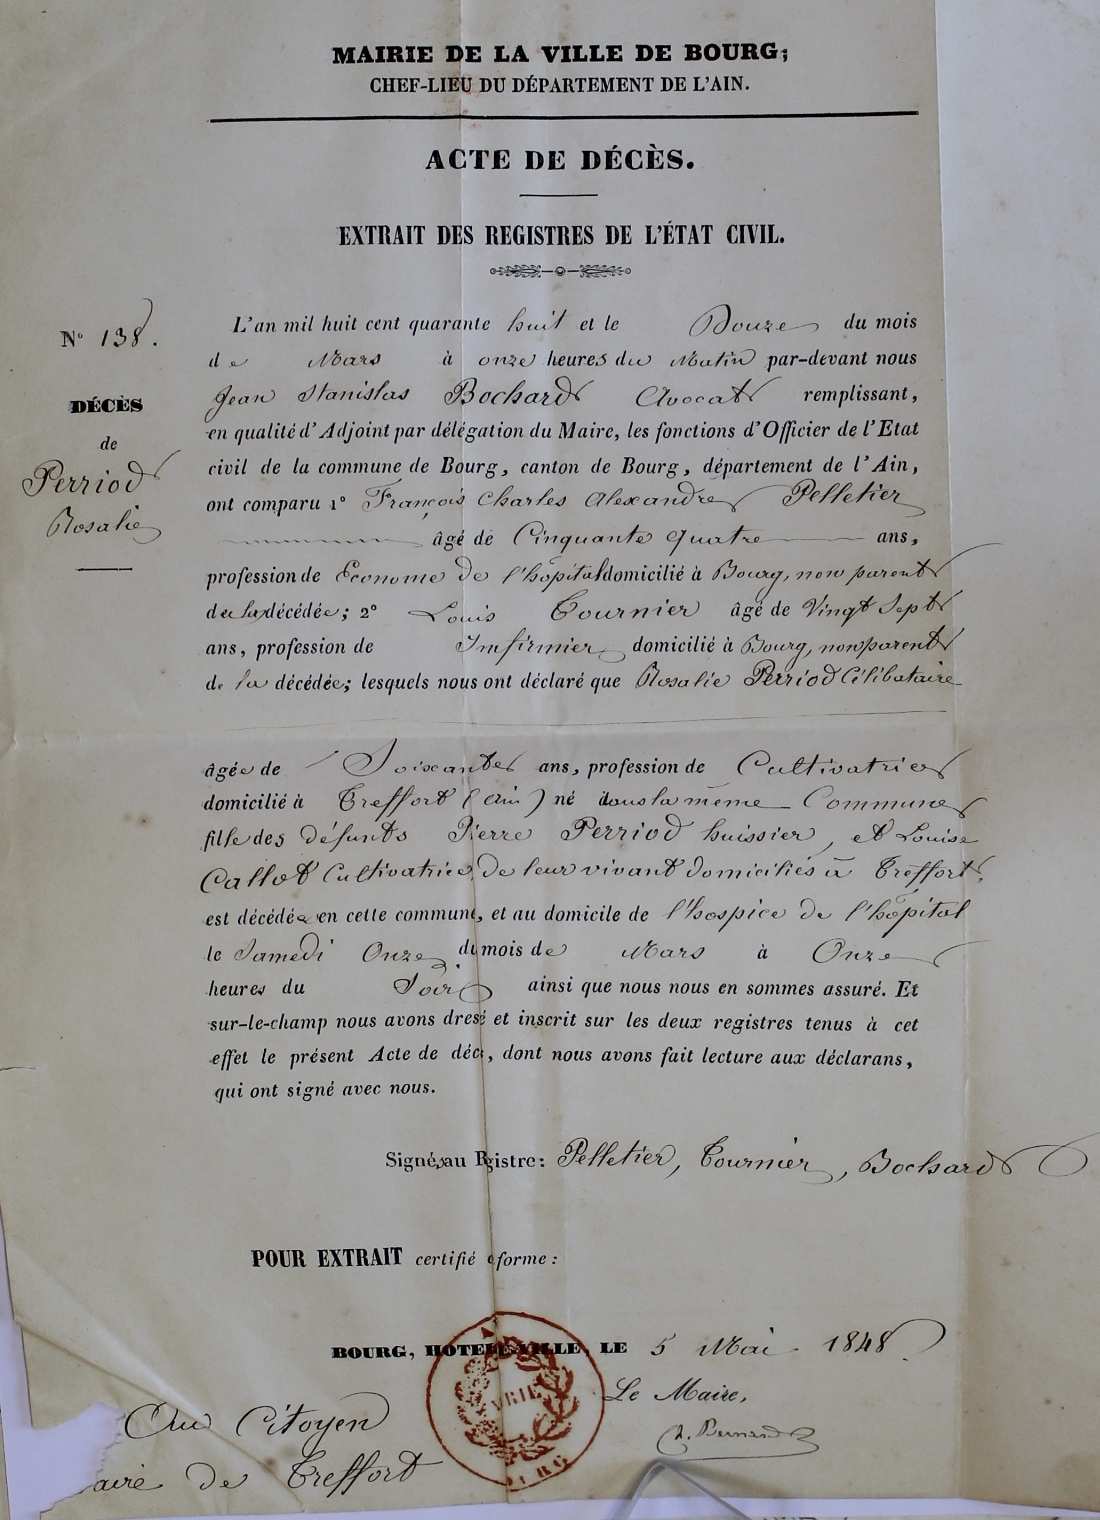 MAIRIE DE LA VILLE DE BOURG;
CHEF-LIEU DU DÉPARTEMENT DE L'AIN.
ACTE DE DÉCÈS.
EXTRAIT DES REGISTRES DE L'ÉTAT CIVIL.
N° 138.
DÉCÈS
de
Perriod
Rosalie
L'an mil huit cent quarante huit et le Douze du mois
de Mars à onze heures du Matin par-devant nous
Jean Stanislas Bochard Avocat remplissant,
en qualité d'Adjoint par délégation du Maire, les fonctions d'Officier de l'Etat
civil de la commune de Bourg, canton de Bourg, département de l'Ain,
ont comparu 1° François Charles Alexandre Pelletier
âgé de Cinquante quatre ans,
profession de Econome de l'hôpital domicilié à Bourg, non parent
de la décédée; 2° Louis Tournier âgé de Vingt Sept
ans, profession de Infirmier domicilié à Bourg, non parent
de la décédée; lesquels nous ont déclaré que Rosalie Perriod Célibataire
âgée de Soixante ans, profession de Cultivatrice
domicilié à Treffort (Ain) né dans la même Commune
fille des défunts Pierre Perriod huissier, et Louise
Callot Cultivatrice, de leur vivant domiciliés à Treffort,
est décédée en cette commune, et au domicile de l'hospice de l'hôpital
le Samedi Onze du mois de Mars à Onze
heures du Soir ainsi que nous nous en sommes assuré. Et
sur-le-champ nous avons dressé et inscrit sur les deux registres tenus à cet
effet le présent Acte de déc, dont nous avons fait lecture aux déclarans,
qui ont signé avec nous.
Signé au Rgistre: Pelletier, Tournier, Bochard
POUR EXTRAIT certifié forme:
BOURG, HOTEL VILLE, LE 5 Mai 1848.
MAIRIE
BURG
Le Maire,
Bernard
Au Citoyen
aire de Treffort